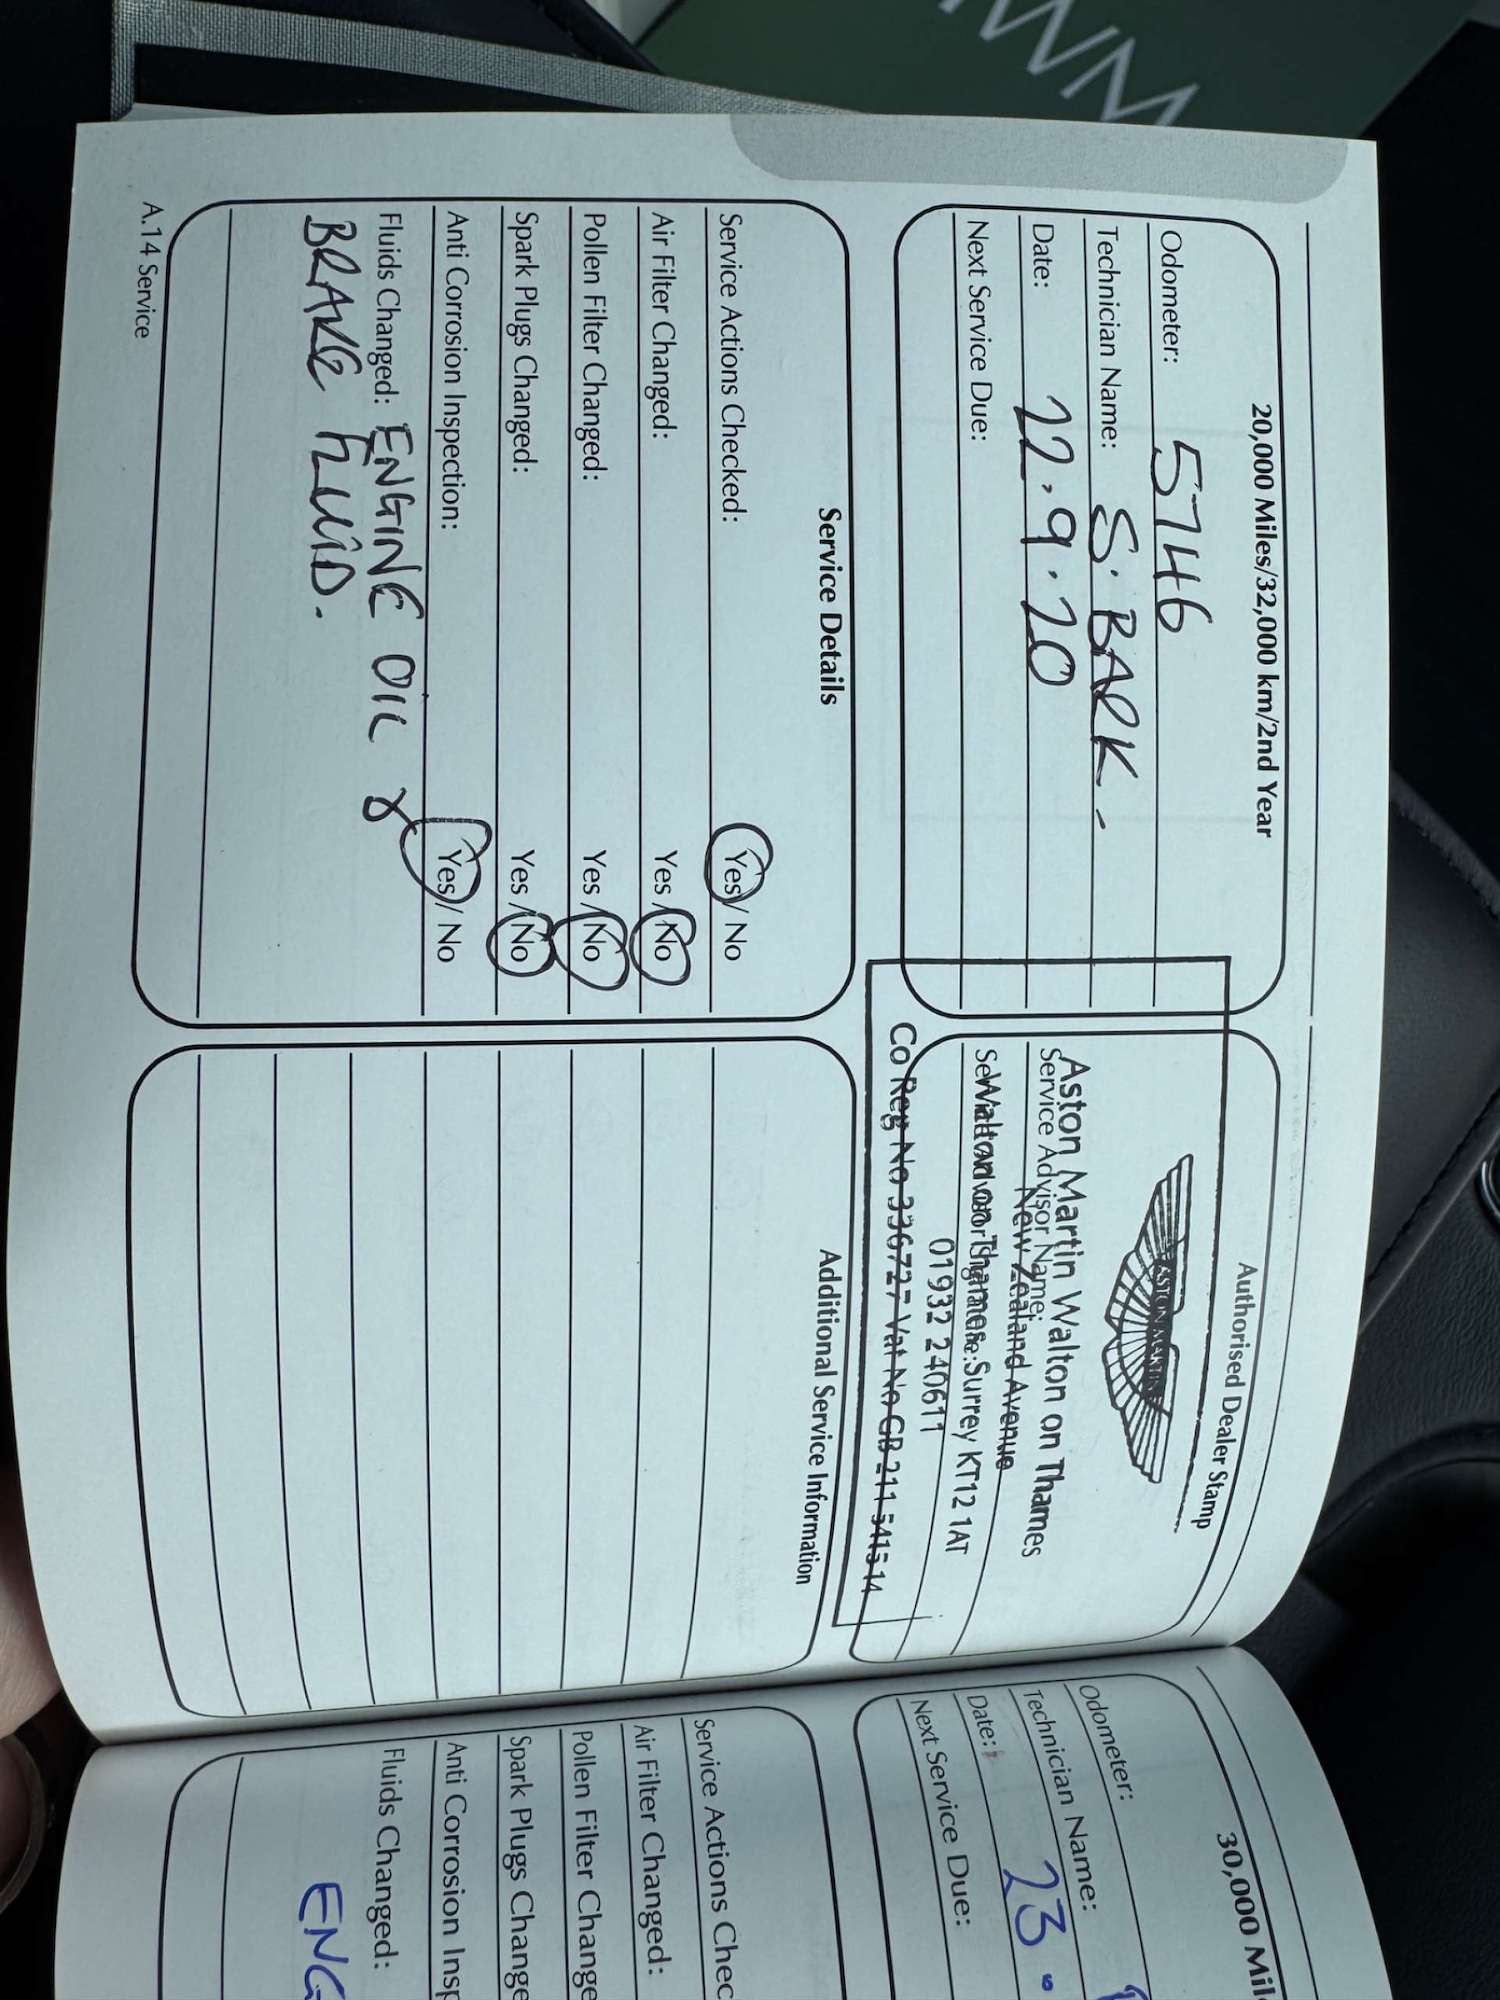 WM
20,000 Miles/32,000 km/2nd Year
Odometer: 5746
Technician Name: S. BARK.
Date: 22.9.20
Next Service Due:
Authorised Dealer Stamp
ASTON MARTIN
Aston Martin Walton on Thames
Service Advisor Name:
New Zealand Avenue
Walton on Thames Surrey KT12 1AT
01932 240611
Co Reg No 336727 Vat No GB 211 5415 14
Service Details
Service Actions Checked: Yes / No
Air Filter Changed: Yes / No
Pollen Filter Changed: Yes / No
Spark Plugs Changed: Yes / No
Anti Corrosion Inspection: Yes / No
Fluids Changed: ENGINE OIL &
BRAKE FLUID.
Additional Service Information
A.14 Service
30,000 Mil
Odometer:
Technician Name:
Date: 23.
Next Service Due:
Service Actions Chec
Air Filter Changed:
Pollen Filter Change
Spark Plugs Change
Anti Corrosion Insp
Fluids Changed:
ENG